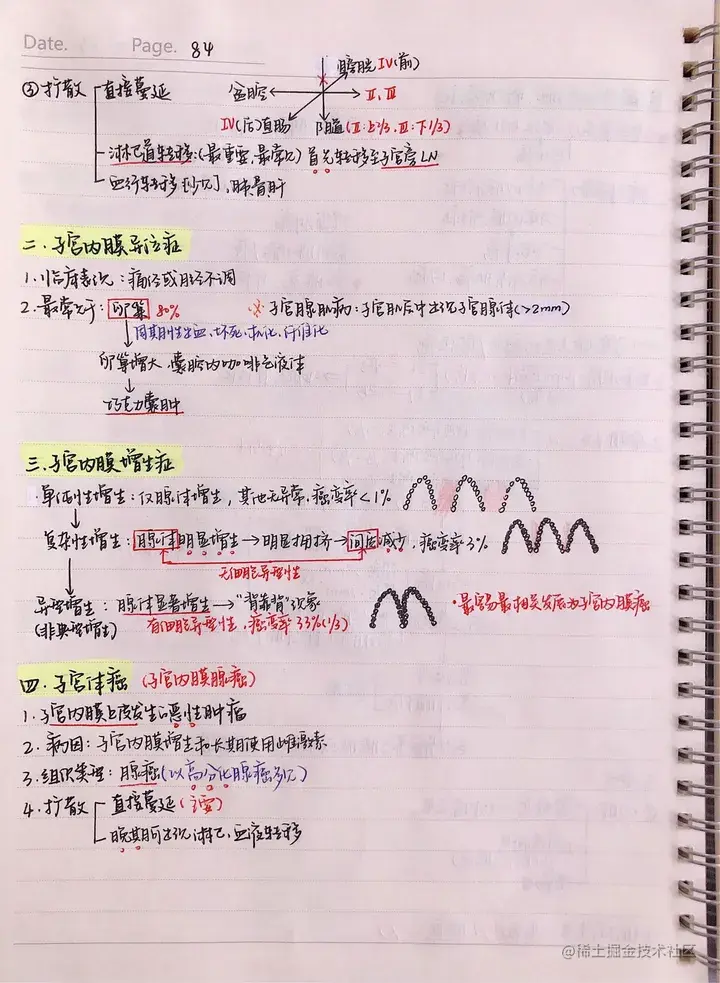 Date. Page. 84
膀胱 IV(前)
③扩散 直接蔓延 盆腔 II、III
IV(后)直肠 阴道(II:上2/3, III:下1/3)
淋巴道转移:(最重要、最常见) 首先转移至子宫旁LN
血行转移[少见], 肺骨肝
二.子宫内膜异位症
1.临床表现:痛经或月经不调
2.最常见于:卵巢 80% ※子宫腺肌病:子宫肌层中出现子宫腺体(>2mm)
周期性出血、坏死、机化、纤维化
卵巢增大,囊腔内咖啡色液体
巧克力囊肿
三.子宫内膜增生症
·单纯性增生:仅腺体增生,其他无异常,癌变率<1%
复杂性增生:腺体明显增生→明显拥挤→间质减少,癌变率3%
无细胞异型性
异型增生:腺体显著增生→"背靠背"现象 ·最容易最相关发展为子宫内膜癌
(非典型增生) 有细胞异型性,癌变率33%(1/3)
四.子宫体癌 (子宫内膜腺癌)
1.子宫内膜上皮发生的恶性肿瘤
2.病因:子宫内膜增生和长期使用雌激素
3.组织类型:腺癌(以高分化腺癌多见)
4.扩散 直接蔓延(主要)
晚期可出现淋巴、血液转移
@稀土掘金技术社区